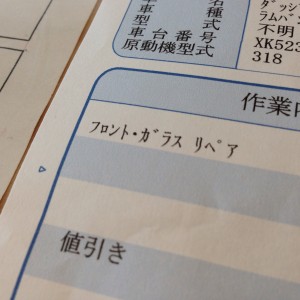 車名 ダッジ
車種 ラムバ
型式 不明
車台番号 XK523
原動機型式 318
作業内
フロント・ガラス リペア
値引き